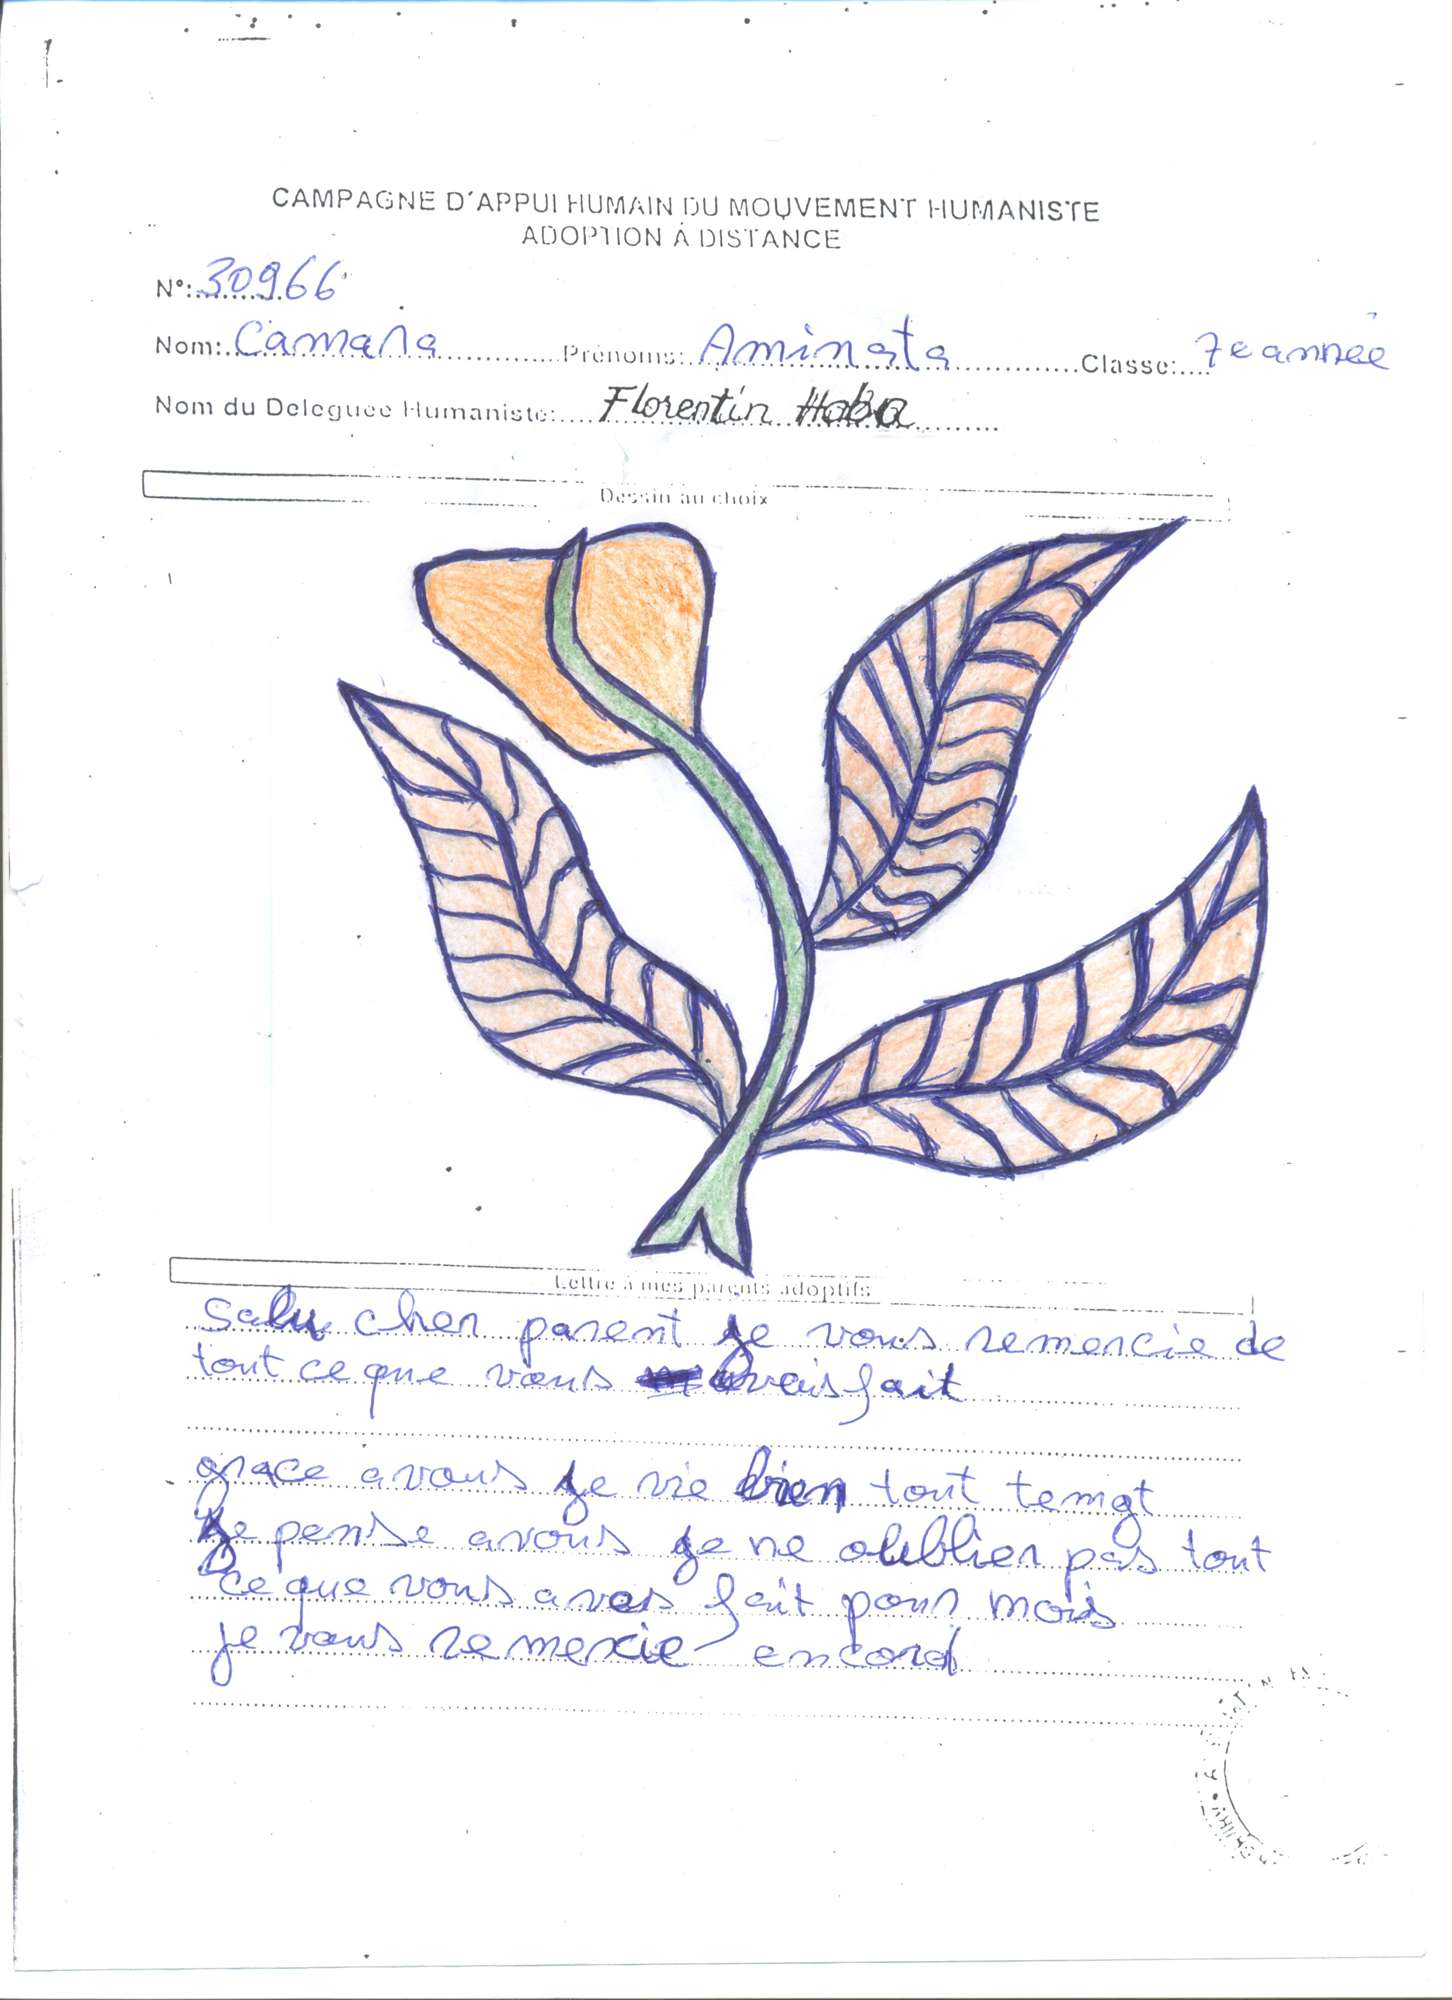 CAMPAGNE D'APPUI HUMAIN DU MOUVEMENT HUMANISTE
ADOPTION À DISTANCE
N°: 30966
Nom: Camara Prénoms: Aminata Classe: 7eannee
Nom du Deleguee Humaniste: Florentin Haba
Dessin au choix
Lettre à mes parents adoptifs
Salu cher parent je vous remercie de
tout ce que vous avais fait
grace avous je vie bien tout temgt
Je pense avous je ne oublier pas tout
ce que vous aves fait pour mois
je vous remercie encord